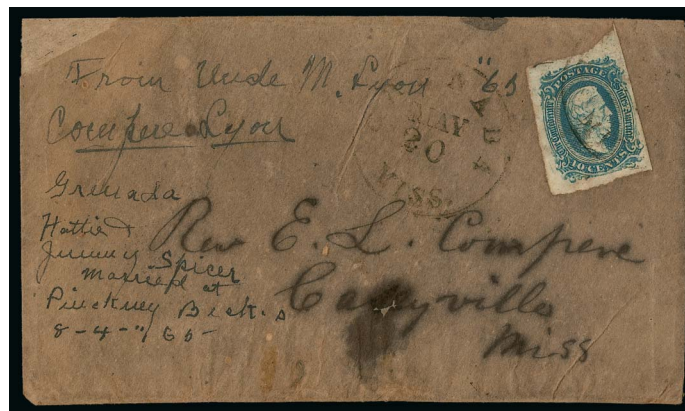 From Uncle M. Lyon "65
Compere Lyon
MAY
20
MISS.
POSTAGE
10 CENTS
Grenada
Hattie &
Jimmy Spicer
married at
Pinckney Beck.s
8-4-"65-
Rev E. L. Compere
Miss